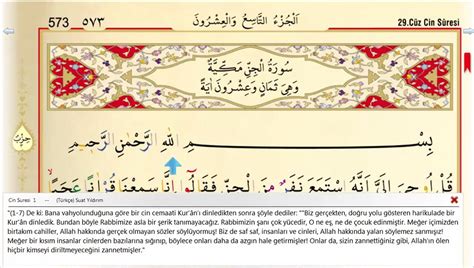 573 ٥٧٣ اَلْجُزْءُ التَّاسِعُ وَالْعِشْرُونَ 29.Cüz Cin Sûresi
سُورَةُ الْجِنِّ مَكِّيَّةٌ
وَهِيَ ثَمَانٍ وَعِشْرُونَ اٰيَةً
حزب
بِسْمِ اللّٰهِ الرَّحْمٰنِ الرَّحِيمِ
قُلْ اُو۫حِيَ اِلَيَّ اَنَّهُ اسْتَمَعَ نَفَرٌ مِنَ الْجِنِّ فَقَالُٓوا اِنَّا سَمِعْنَا قُرْاٰنًا عَجَبًا
Cin Suresi 1 -- (Türkçe) Suat Yıldırım
"(1-7) De ki: Bana vahyolunduğuna göre bir cin cemaati Kur'ân'ı dinledikten sonra şöyle dediler: ""Biz gerçekten, doğru yolu gösteren harikulade bir
Kur'ân dinledik. Bundan böyle Rabbimize asla bir şerik tanımayacağız. Rabbimizin şanı çok yücedir, O ne eş, ne de çocuk edinmiştir. Meğer içimizden
birtakım cahiller, Allah hakkında gerçek olmayan sözler söylüyormuş! Biz de saf saf, insanları ve cinleri, Allah hakkında yalan söylemez sanmışız!
Meğer bir kısım insanlar cinlerden bazılarına sığınıp, böylece onları daha da azgın hale getirmişler! Onlar da, sizin zannettiğiniz gibi, Allah'ın ölen
hiçbir kimseyi diriltmeyeceğini zannetmişler."